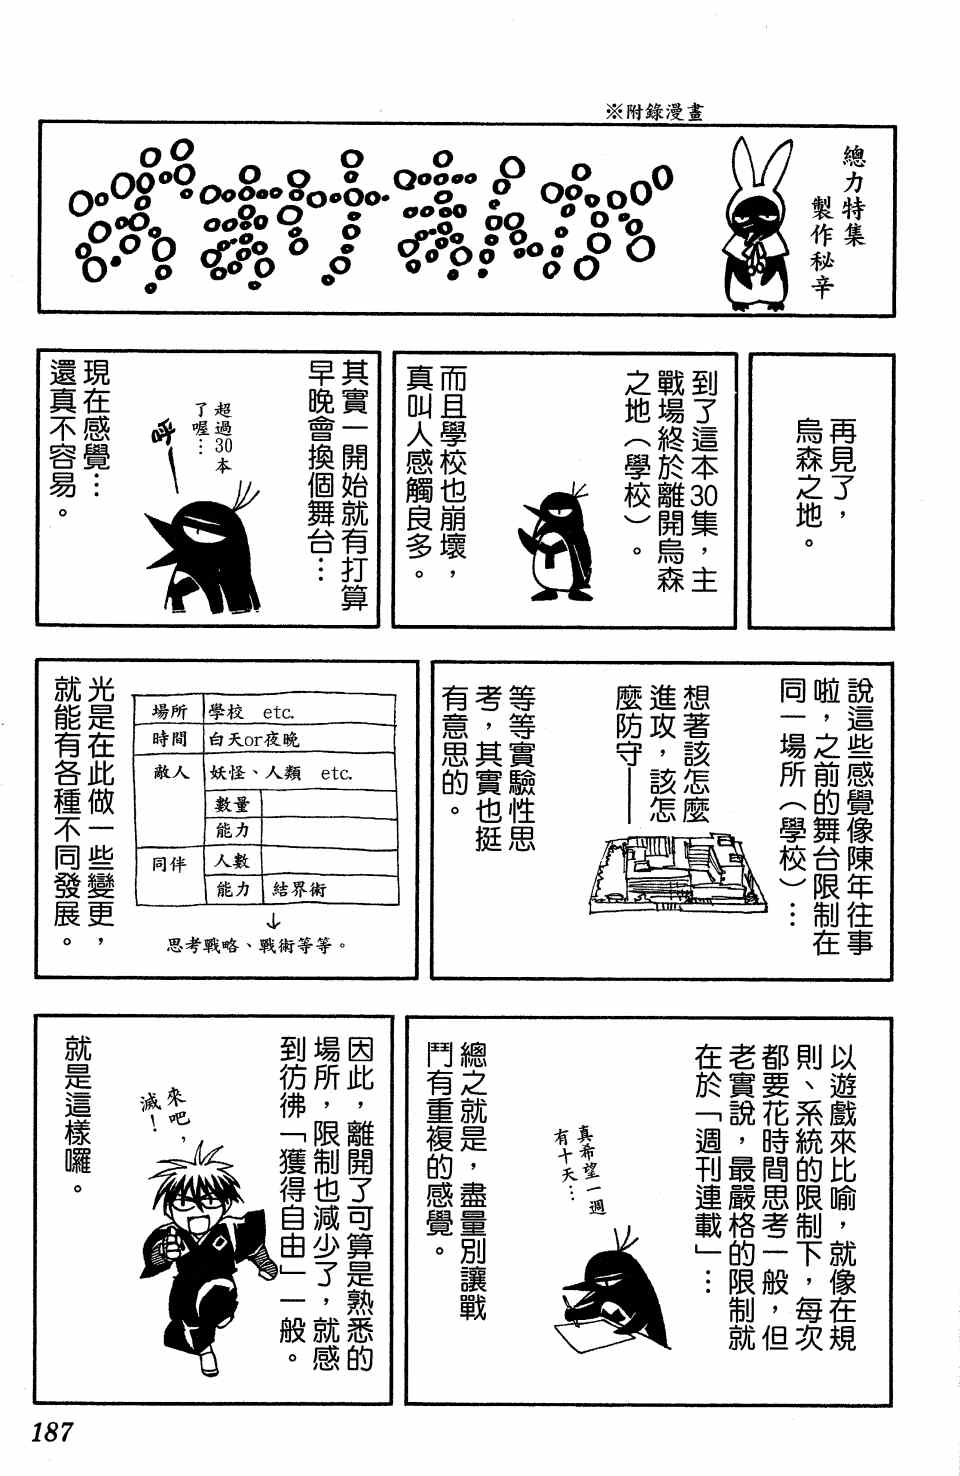 ※附錄漫畫
總力特集
製作秘辛
おまけまんが
再見了，
烏森之地。
到了這本30集，主
戰場終於離開烏森
之地（學校）。
而且學校也崩壞，
真叫人感觸良多。
其實一開始就有打算
早晚會換個舞台…
超過30本
了喔…
呼—
現在感覺…
還真不容易。
說這些感覺像陳年往事
啦，之前的舞台限制在
同一場所（學校）…
想著該怎麼
進攻，該怎
麼防守——
等等實驗性思
考，其實也挺
有意思的。
場所 學校 etc.
時間 白天or夜晚
敵人 妖怪、人類 etc.
數量
能力
同伴 人數
能力 結界術
↓
思考戰略、戰術等等。
光是在此做一些變更，
就能有各種不同發展。
以遊戲來比喻，就像在規
則、系統的限制下，每次
都要花時間思考一般，但
老實說，最嚴格的限制就
在於「週刊連載」…
真希望一週
有十天…
總之就是，盡量別讓戰
鬥有重複的感覺。
因此，離開了可算是熟悉的
場所，限制也減少了，就感
到彷彿「獲得自由」一般。
來吧，
滅！
就是這樣囉。
187